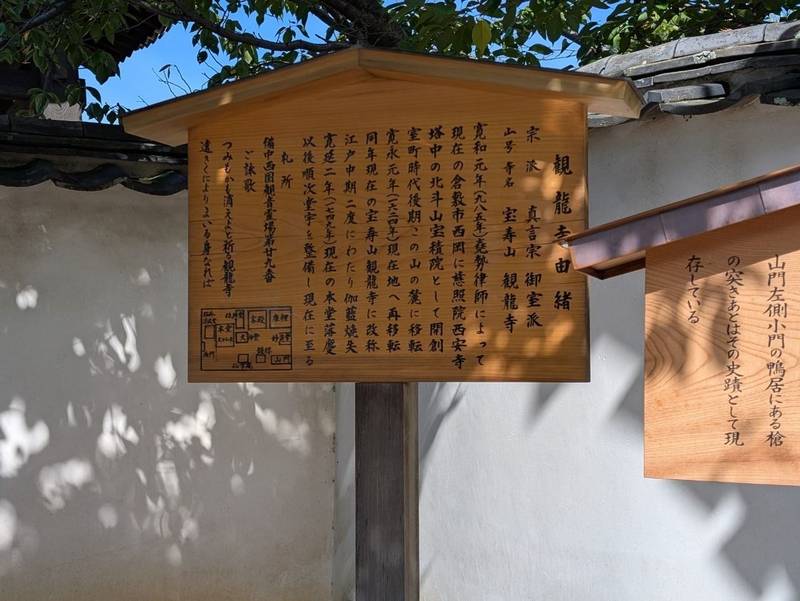 観龍寺由緒
宗派 真言宗 御室派
山号寺名 宝寿山 観龍寺
寛和元年(九八五年)堯勢律師によって
現在の倉敷市西岡に慈照院西安寺
塔中の北斗山宝積院として開創
室町時代後期この山の麓に移転
寛永元年(一六二四年)現在地へ再移転
同年現在の宝寿山観龍寺に改称
江戸中期二度にわたり伽藍焼失
寛延二年(一七四九年)現在の本堂落慶
以後順次堂宇を整備し現在に至る
札所
備中西国観音霊場第廿九番
ご詠歌
つみもかも消えよと祈る観龍寺
遠きくによりまいる身なれば
本堂
客殿
庫裡
山門
山門左側小門の鴨居にある槍
の突きあとはその史蹟として現
存している